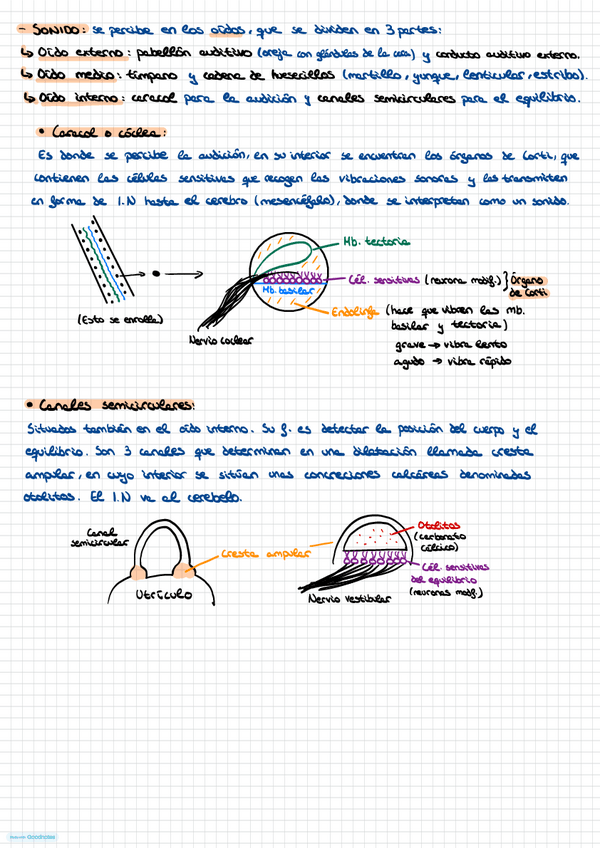 - SONIDO: se percibe en los oídos, que se dividen en 3 partes:
↳ Oído externo: pabellón auditivo (oreja con glándulas de la cera) y conducto auditivo externo.
↳ Oído medio: tímpano y cadena de huesecillos (martillo, yunque, lenticular, estribo).
↳ Oído interno: caracol para la audición y canales semicirculares para el equilibrio.
• Caracol o cóclea:
Es donde se percibe la audición, en su interior se encuentran los órganos de Corti, que
contienen las células sensitivas que recogen las vibraciones sonoras y las transmiten
en forma de I.N hasta el cerebro (mesencéfalo), donde se interpretan como un sonido.
Mb. tectoria
Cél. sensitivas (neurona modif.) } Órgano de Corti
Mb. basilar
(Esto se enrolla)
Endolinfa (hace que vibren las mb.
basilar y tectoria)
Nervio coclear
grave → vibra lento
agudo → vibra rápido
• Canales semicirculares:
Situados también en el oído interno. Su f. es detectar la posición del cuerpo y el
equilibrio. Son 3 canales que determinan en una dilatación llamada cresta
ampular, en cuyo interior se sitúan unas concreciones calcáreas denominadas
otolitos. El I.N va al cerebelo.
Canal
semicircular
Cresta ampular
Utrículo
Otolitos
(carbonato
cálcico)
Cél. sensitivas
del equilibrio
(neuronas modif.)
Nervio vestibular
Goodnotes